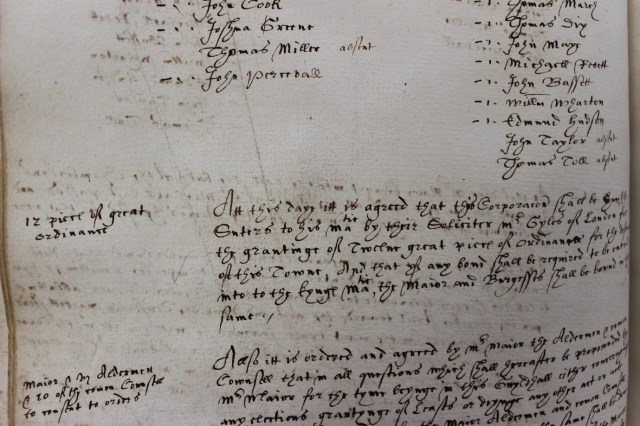 John Cook
Joshua Greene
Thomas Miller absent
John Percevall
Thomas March
Thomas Dix
John Maye
Michaell Revett
John Bassett
Willm Wharton
Edmund Hudson
John Taylor absent
Thomas Toll absent
12 piece of great
ordinance
Att this daye itt is agreed that this Corporacon shall be
Suters to his Matie by their Soliciter mr Gyles of London for
the grantinge of Twelve great piece of Ordinance for the
of this Towne, And that yf any bond shall be required to be
into to the kynge Matie, the Maior and Burgesses shall be bound in
same.
Maior & Aldermen
& 10 of the comon Counsell
to consent to orders
Allso itt is ordered and agreed by mr Maior the Aldermen &
Counsell that in all questions which shall hereafter be propounded
mr Maior for the tyme beynge in this Guyldhall either
any elections grantynge of Leases or any other act or
Maior Aldermen and comon
shall